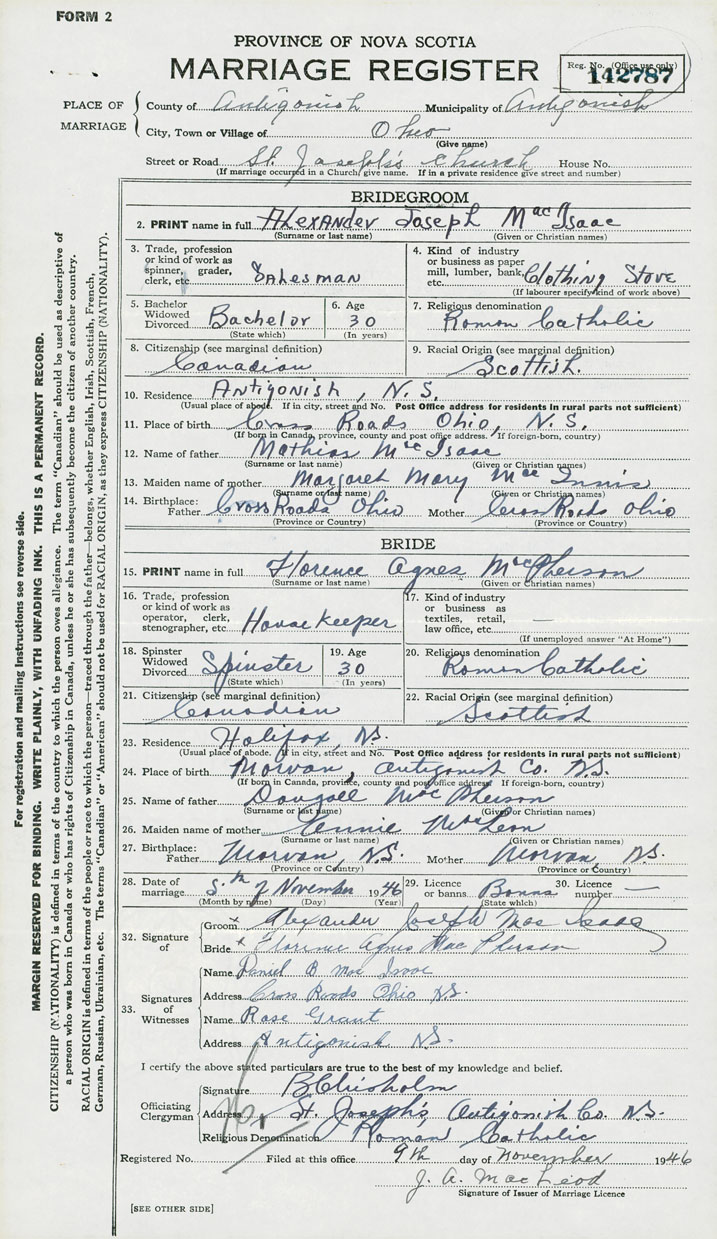 FORM 2
PROVINCE OF NOVA SCOTIA
MARRIAGE REGISTER
Reg. No. (Office use only)
142787
PLACE OF MARRIAGE
County of Antigonish Municipality of Antigonish
City, Town or Village of Ohio
(Give name)
Street or Road St. Joseph's Church House No.
(If marriage occurred in a Church, give name. If in a private residence give street and number)
BRIDEGROOM
2. PRINT name in full Alexander Joseph MacIsaac
(Surname or last name) (Given or Christian names)
3. Trade, profession or kind of work as spinner, grader, clerk, etc. Salesman
4. Kind of industry or business as paper mill, lumber, bank, etc. Clothing Store
(If labourer specify kind of work above)
5. Bachelor Widowed Divorced Bachelor
(State which)
6. Age 30
(In years)
7. Religious denomination
Roman Catholic
8. Citizenship (see marginal definition)
Canadian
9. Racial Origin (see marginal definition)
Scottish.
10. Residence Antigonish, N.S.
(Usual place of abode. If in city, street and No. Post Office address for residents in rural parts not sufficient)
11. Place of birth Cross Roads Ohio, N.S.
(If born in Canada, province, county and post office address. If foreign-born, country)
12. Name of father Mathias MacIsaac
(Surname or last name) (Given or Christian names)
13. Maiden name of mother Margaret Mary MacInnis
(Surname or last name) (Given or Christian names)
14. Birthplace: Father Cross Roads Ohio Mother Cross Roads Ohio
(Province or Country) (Province or Country)
BRIDE
15. PRINT name in full Florence Agnes MacPherson
(Surname or last name) (Given or Christian names)
16. Trade, profession or kind of work as operator, clerk, stenographer, etc. Housekeeper
17. Kind of industry or business as textiles, retail, law office, etc. —
(If unemployed answer "At Home")
18. Spinster Widowed Divorced Spinster
(State which)
19. Age 30
(In years)
20. Religious denomination
Roman Catholic
21. Citizenship (see marginal definition)
Canadian
22. Racial Origin (see marginal definition)
Scottish
23. Residence Halifax, N.S.
(Usual place of abode. If in city, street and No. Post Office address for residents in rural parts not sufficient)
24. Place of birth Morvan, Antigonish Co. N.S.
(If born in Canada, province, county and post office address. If foreign-born, country)
25. Name of father Dougall MacPherson
(Surname or last name) (Given or Christian names)
26. Maiden name of mother Annie MacLean
(Surname or last name) (Given or Christian names)
27. Birthplace: Father Morvan, N.S. Mother Morvan, N.S.
(Province or Country) (Province or Country)
28. Date of marriage 5th of November 1946
(Month by name) (Day) (Year)
29. Licence or banns Banns
(State which)
30. Licence number —
32. Signature of
Groom x Alexander Joseph MacIsaac
Bride x Florence Agnes MacPherson
33. Signatures of Witnesses
Name Daniel B MacIsaac
Address Cross Roads Ohio N.S.
Name Rose Grant
Address Antigonish N.S.
I certify the above stated particulars are true to the best of my knowledge and belief.
Officiating Clergyman
Signature B Chisholm
Address St. Joseph's, Antigonish Co. N.S.
Religious Denomination Roman Catholic
Registered No. Filed at this office 9th day of November 1946
J. A. MacLeod
Signature of Issuer of Marriage Licence
[SEE OTHER SIDE]
For registration and mailing instructions see reverse side.
MARGIN RESERVED FOR BINDING. WRITE PLAINLY, WITH UNFADING INK. THIS IS A PERMANENT RECORD.
CITIZENSHIP (NATIONALITY) is defined in terms of the country to which the person owes allegiance. The term "Canadian" should be used as descriptive of
a person who was born in Canada or who has rights of Citizenship in Canada, unless he or she has subsequently become the citizen of another country.
RACIAL ORIGIN is defined in terms of the people or race to which the person—traced through the father—belongs, whether English, Irish, Scottish, French,
German, Russian, Ukrainian, etc. The terms "Canadian" or "American" should not be used for RACIAL ORIGIN, as they express CITIZENSHIP (NATIONALITY).